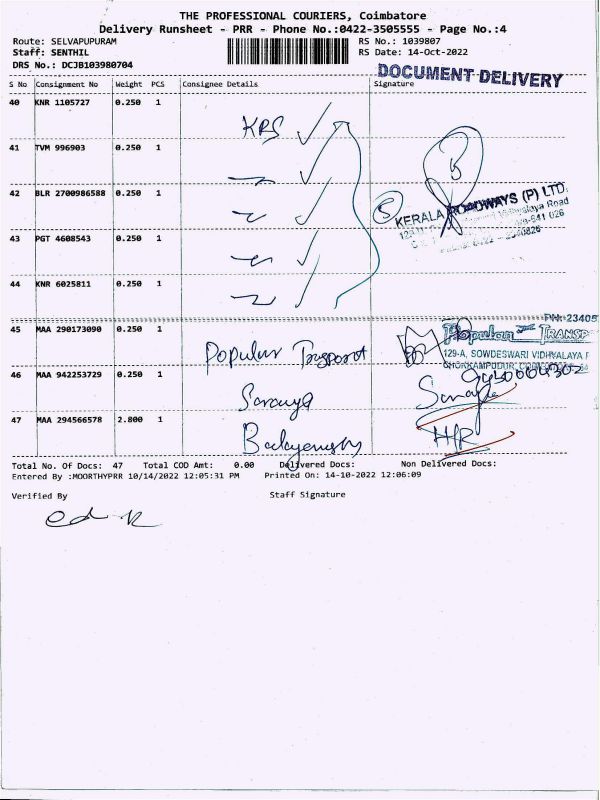 THE PROFESSIONAL COURIERS, Coimbatore
Delivery Runsheet - PRR - Phone No.:0422-3505555 - Page No.:4
Route: SELVAPUPURAM
RS No.: 1039807
Staff: SENTHIL
RS Date: 14-Oct-2022
DRS No.: DCJB103980704
DOCUMENT DELIVERY
S No Consignment No Weight PCS Consignee Details Signature
40 KNR 1105727 0.250 1
KRS
41 TVM 996903 0.250 1
42 BLR 2700986588 0.250 1
KERALA ROADWAYS (P) LTD.
43 PGT 4608543 0.250 1
44 KNR 6025811 0.250 1
PH: 23405
45 MAA 290173090 0.250 1
Popular Transport
Popular TRANSP
129-A, SOWDESWARI VIDHYALAYA
46 MAA 942253729 0.250 1
Saranya
47 MAA 294566578 2.800 1
H/R
Total No. Of Docs: 47 Total COD Amt: 0.00 Delivered Docs: Non Delivered Docs:
Entered By :MOORTHYPRR 10/14/2022 12:05:31 PM Printed On: 14-10-2022 12:06:09
Verified By Staff Signature